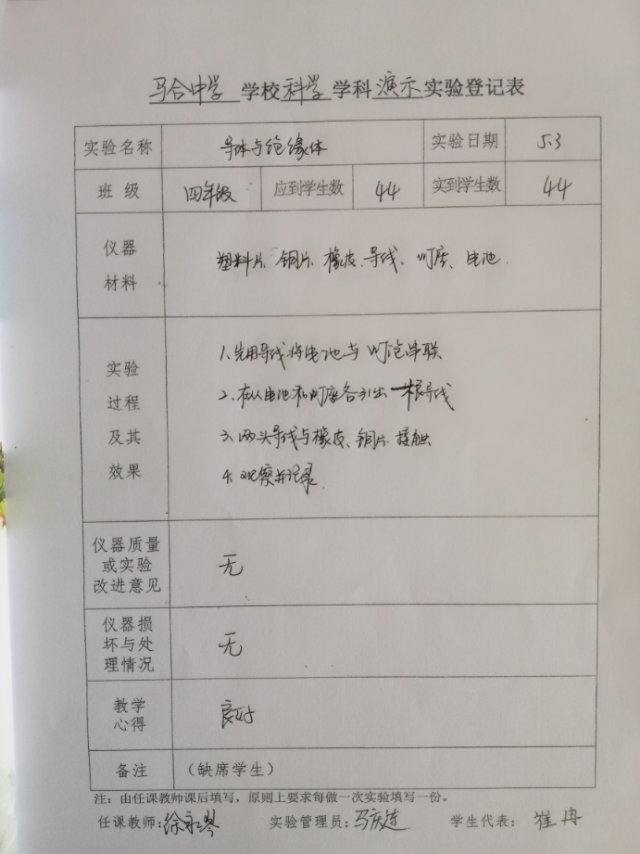 马合中学 学校科学学科演示实验登记表
实验名称 导体与绝缘体 实验日期 5.3
班 级 四年级 应到学生数 44 实到学生数 44
仪器
材料
塑料片、铜片、橡皮、导线、灯座、电池.
实验
过程
及其
效果
1.先用导线将电池与灯泡串联
2.在从电池和灯座各引出一根导线
3.两头导线与橡皮、铜片接触
4.观察并记录
仪器质量
或实验
改进意见
无
仪器损
坏与处
理情况
无
教学
心得
良好
备注 （缺席学生）
注：由任课教师课后填写，原则上要求每做一次实验填写一份。
任课教师：徐永琴 实验管理员：马庆连 学生代表：崔冉